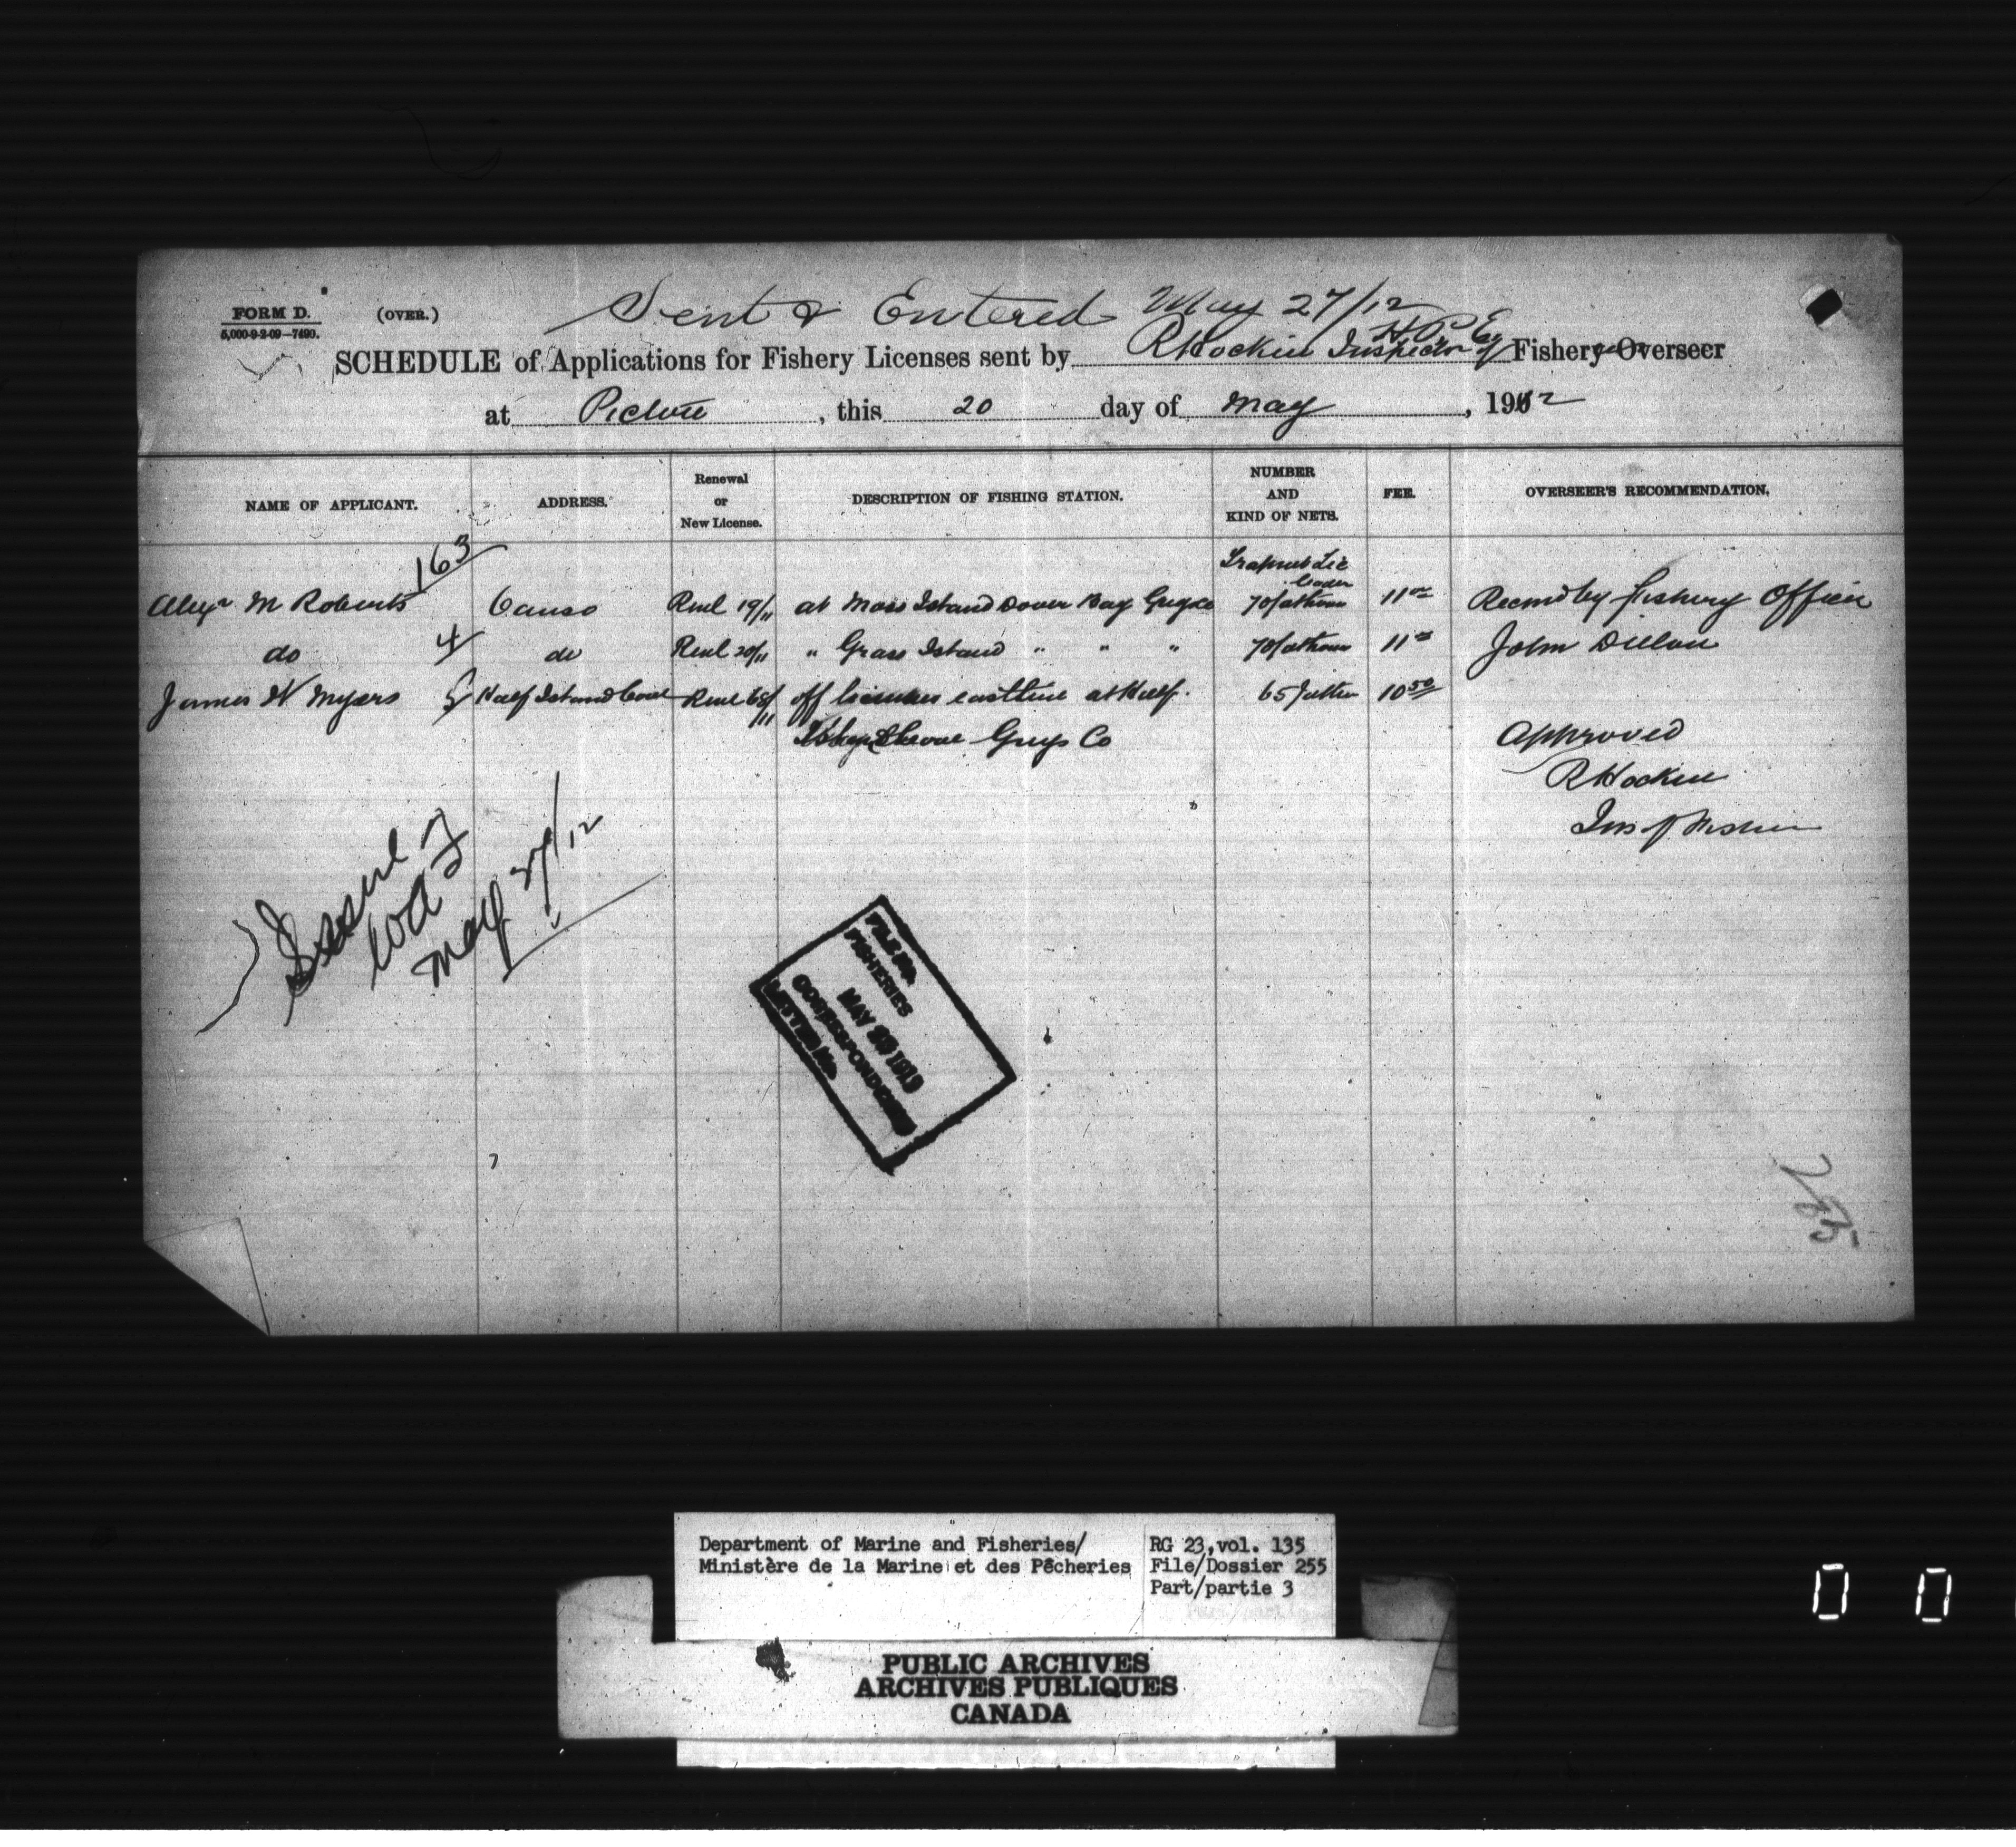 FORM D.
5,000-9-2-09—7490.
(OVER.)
Sent & Entered May 27/12
H P E
SCHEDULE of Applications for Fishery Licenses sent by R Hockin Inspector of Fishery Overseer
at Pictou, this 20 day of May, 1912
NAME OF APPLICANT. ADDRESS. Renewal or New License. DESCRIPTION OF FISHING STATION. NUMBER AND KIND OF NETS. FEE. OVERSEER'S RECOMMENDATION.
163
Trapnet Lic
leader
Alexr M Roberts Canso Renl 19/11 at Moss Island Dover Bay Guys Co 70 fathom 11 00 Recmd by Fishery Officer
do 4 do Renl 20/11 " Grass Island " " " 70 fathom 11 00 John Dillon
James W Myers 5 Half Island Cove Renl 65/11 off east line at Half 65 fathm 10 50
Cove Guys Co
Approved
R Hockin
Ins of Fisheries
Issued
May 27/12
FILE No.
FISHERIES
MAY 23 1912
CORRESPONDENCE
LETTER No.
Department of Marine and Fisheries/
Ministère de la Marine et des Pêcheries
RG 23,vol. 135
File/Dossier 255
Part/partie 3
PUBLIC ARCHIVES
ARCHIVES PUBLIQUES
CANADA
0 0